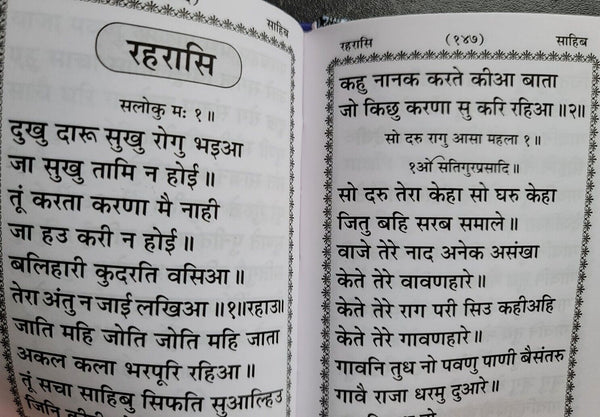 साहिब
रहरासि
सलोकु मः १॥
दुखु दारू सुखु रोगु भइआ
जा सुखु तामि न होई॥
तूं करता करणा मै नाही
जा हउ करी न होई॥
बलिहारी कुदरति वसिआ॥
तेरा अंतु न जाई लखिआ॥१॥रहाउ॥
जाति महि जोति जोति महि जाता
अकल कला भरपूरि रहिआ॥
तूं सचा साहिबु सिफति सुआल्हिउ
जिनि
रहरासि (१४७) साहिब
कहु नानक करते कीआ बाता
जो किछु करणा सु करि रहिआ॥२॥
सो दरु रागु आसा महला १॥
१ओं सतिगुरप्रसादि॥
सो दरु तेरा केहा सो घरु केहा
जितु बहि सरब समाले॥
वाजे तेरे नाद अनेक असंखा
केते तेरे वावणहारे॥
केते तेरे राग परी सिउ कहीअहि
केते तेरे गावणहारे॥
गावनि तुध नो पवणु पाणी बैसंतरु
गावै राजा धरमु दुआरे॥